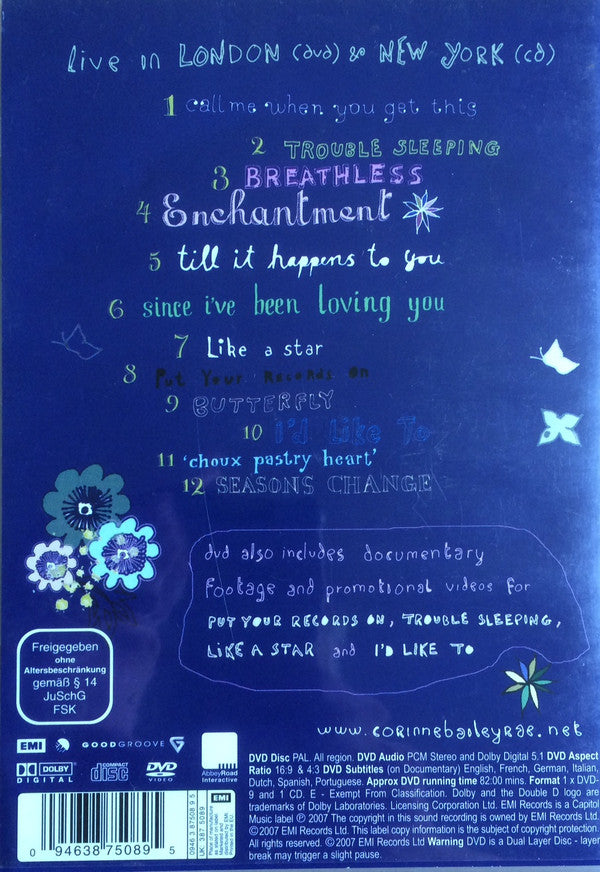 live in LONDON (dvd) & NEW YORK (cd)
1 call me when you get this
2 TROUBLE SLEEPING
3 BREATHLESS
4 Enchantment
5 till it happens to you
6 since i've been loving you
7 Like a star
8 Put Your Records on
9 BUTTERFLY
10 I'd Like To
11 'choux pastry heart'
12 SEASONS CHANGE
dvd also includes documentary
footage and promotional videos for
PUT YOUR RECORDS ON, TROUBLE SLEEPING,
LIKE A STAR and I'D LIKE TO
Freigegeben
ohne
Altersbeschränkung
gemäß § 14
JuSchG
FSK
www.corinnebaileyrae.net
EMI
GOODGROOVE
DOLBY
DIGITAL
COMPACT
disc
DVD
VIDEO
AbbeyRoad
Interactive
DVD Disc PAL. All region. DVD Audio PCM Stereo and Dolby Digital 5.1 DVD Aspect
Ratio 16:9 & 4:3 DVD Subtitles (on Documentary) English, French, German, Italian,
Dutch, Spanish, Portuguese. Approx DVD running time 82:00 mins. Format 1 x DVD-
9 and 1 CD. E - Exempt From Classification. Dolby and the Double D logo are
trademarks of Dolby Laboratories. Licensing Corporation Ltd. EMI Records is a Capitol
Music label ℗ 2007 The copyright in this sound recording is owned by EMI Records Ltd.
©2007 EMI Records Ltd. This label copyright information is the subject of copyright protection.
All rights reserved. ©2007 EMI Records Ltd Warning DVD is a Dual Layer Disc - layer
break may trigger a slight pause.
0 94638 75089 5
0946 3 87508 9 5
UK: 387 5089
EMI